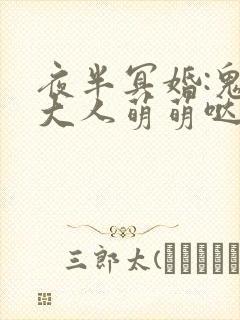 夜半冥婚:鬼
大人萌萌哒
三郎太(